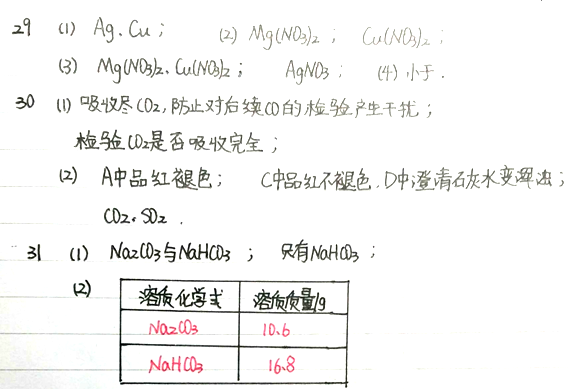 29 (1) Ag、Cu； (2) Mg(NO3)2； Cu(NO3)2；
(3) Mg(NO3)2、Cu(NO3)2； AgNO3； (4) 小于.
30 (1) 吸收尽CO2,防止对后续CO的检验产生干扰；
检验CO2是否吸收完全；
(2) A中品红褪色； C中品红不褪色.D中澄清石灰水变浑浊；
CO2、SO2.
31 (1) Na2CO3与NaHCO3； 只有NaHCO3；
(2)
溶质化学式 溶质质量/g
Na2CO3 10.6
NaHCO3 16.8